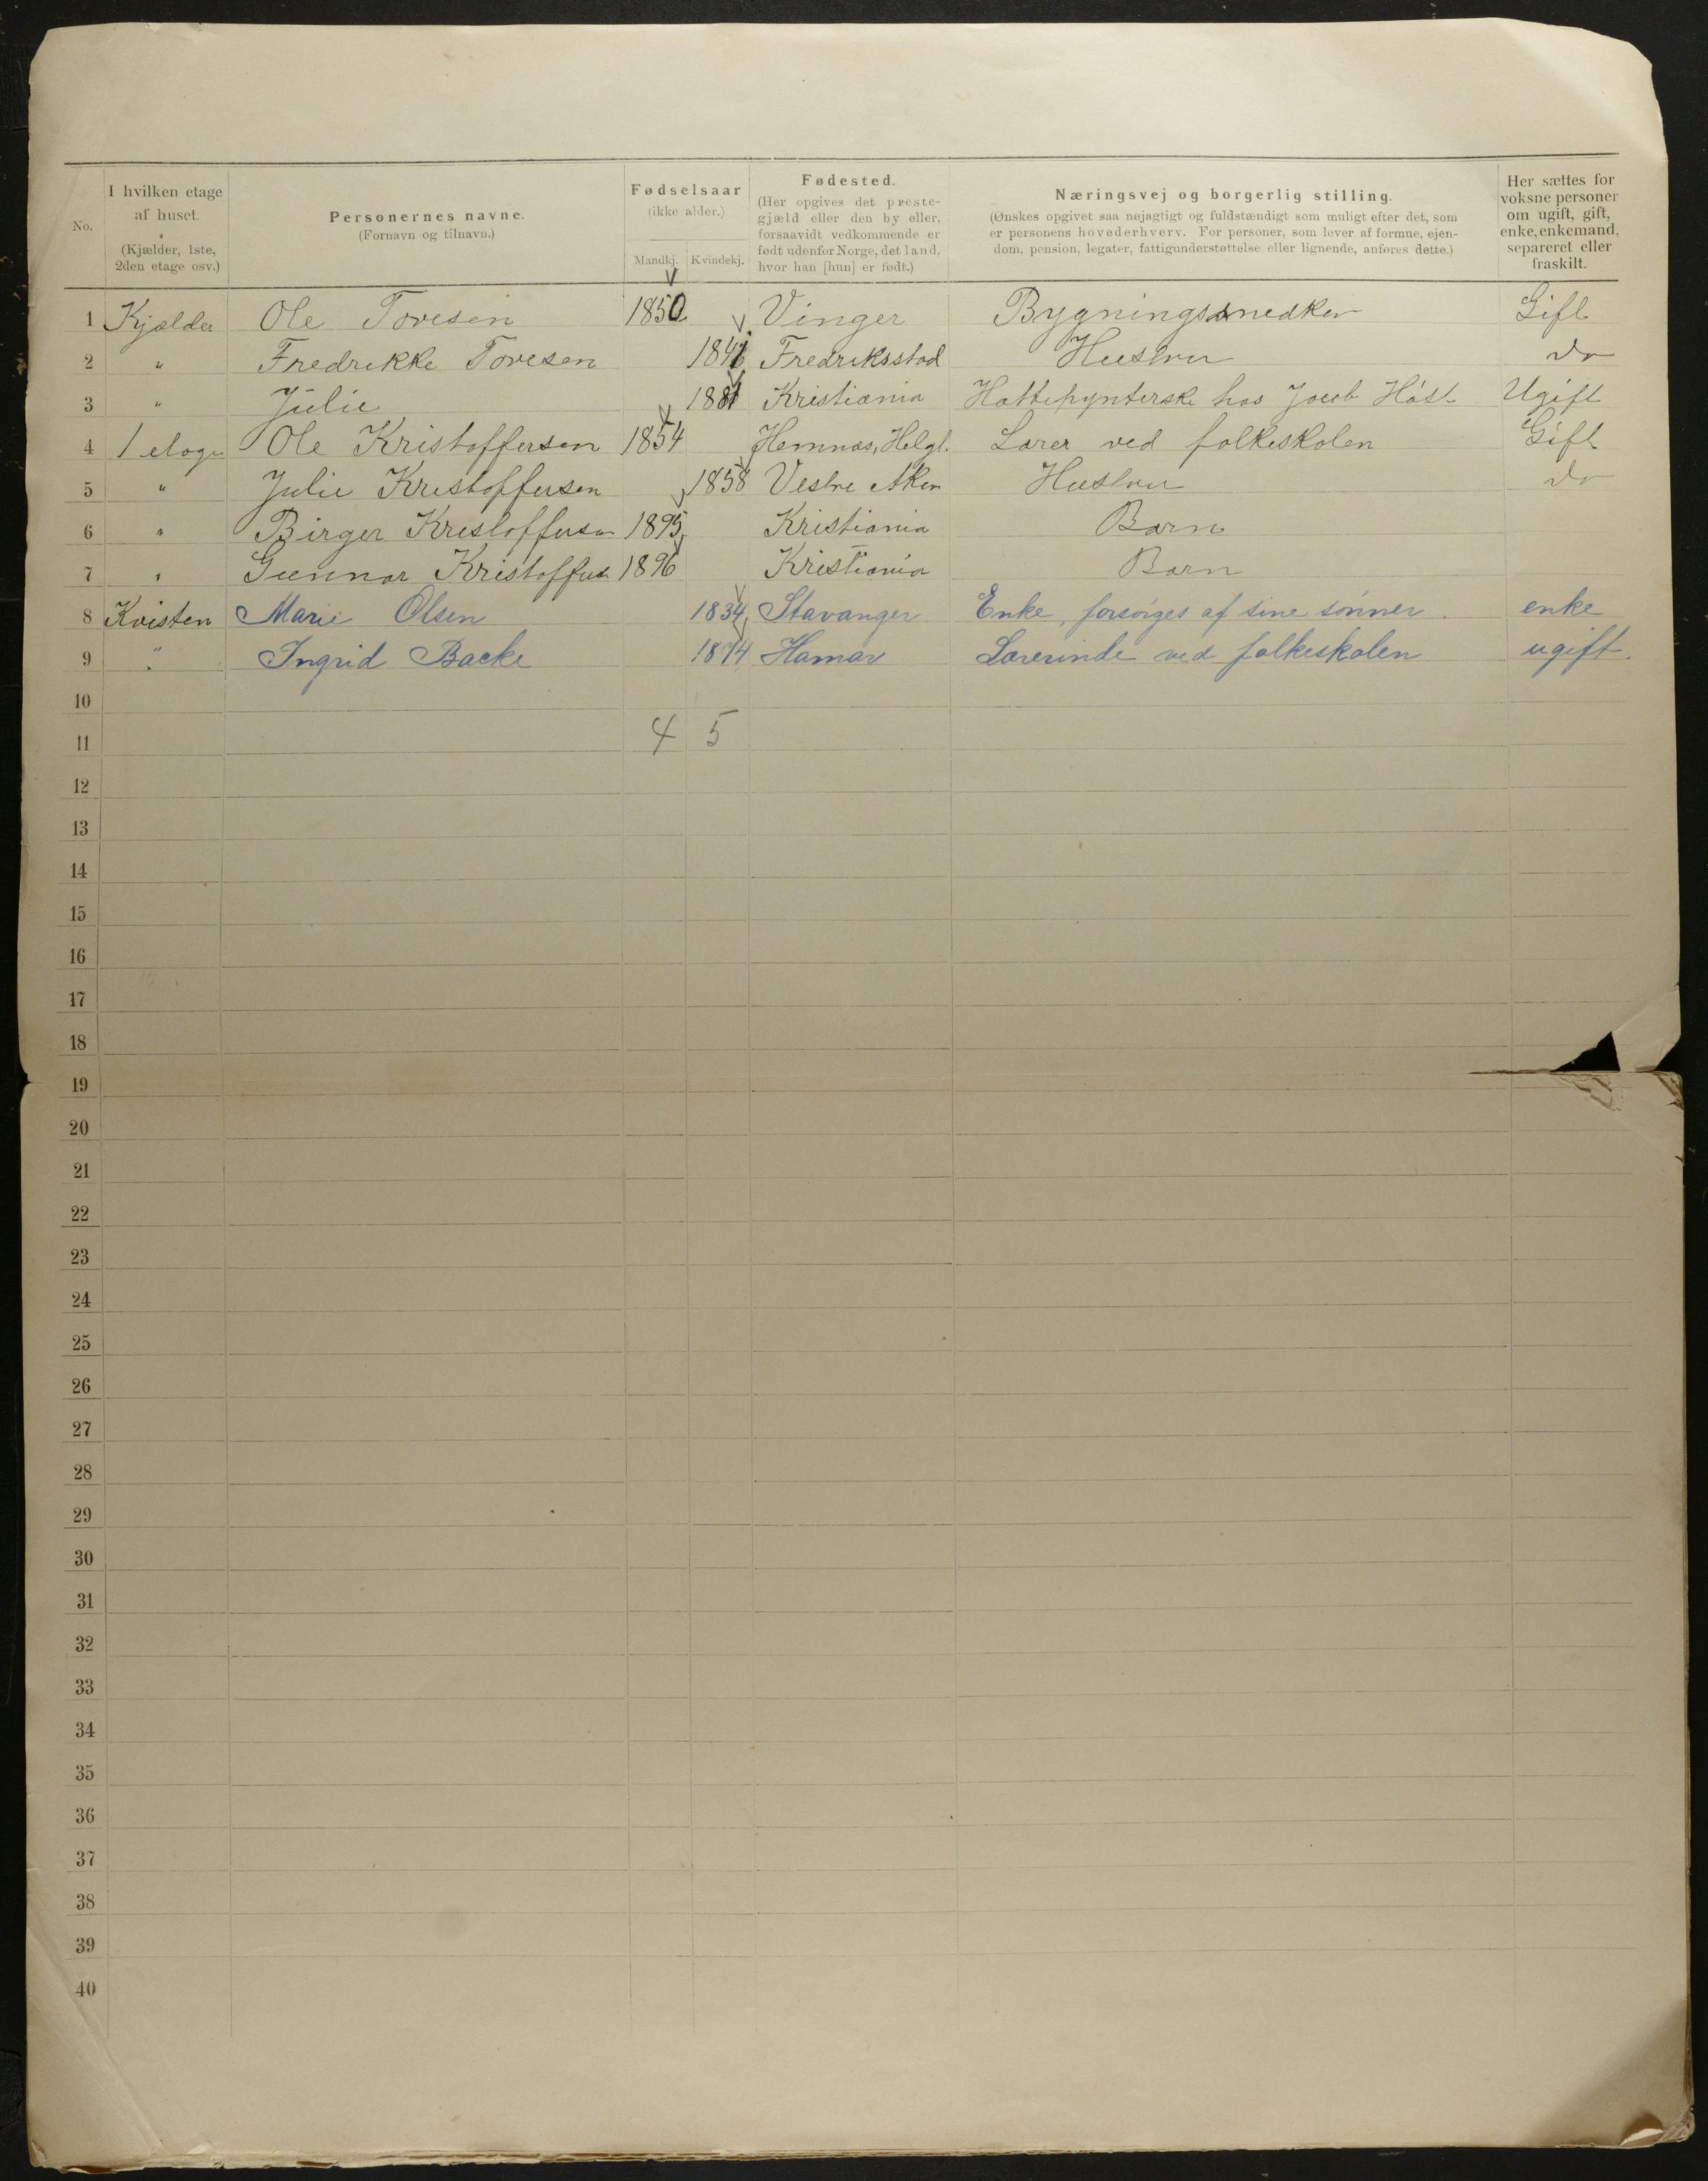 No.
I hvilken etage af huset. (Kjælder, 1ste, 2den etage osv.)
Personernes navne. (Fornavn og tilnavn.)
Fødselsaar (ikke alder.)
Mandkj. Kvindekj.
Fødested. (Her opgives det prestegjæld eller den by eller, forsaavidt vedkommende er født udenfor Norge, det land, hvor han [hun] er født.)
Næringsvej og borgerlig stilling.
(Ønskes opgivet saa nøjagtigt og fuldstændigt som muligt efter det, som
er personens hovederhverv. For personer, som lever af formue, ejen-
dom, pension, legater, fattigunderstøttelse eller lignende, anføres dette.)
Her sættes for voksne personer om ugift, gift, enke, enkemand, separeret eller fraskilt.
1 Kjælder Ole Toresen 1850 Vinger Bygningssnedker Gift
2 " Fredrikke Toresen Fredriksstad Hustru do
3 " Julie Kristiania Hattepynterske hos Jacob Høst Ugift
4 1 etage Ole Kristoffersen 1854 Hemnæs, Helgl. Lærer ved folkeskolen Gift
5 " Julie Kristoffersen 1858 Vestre Aker Hustru do
6 " Birger Kristoffersen 1895 Kristiania Barn
7 " Gunnar Kristoffersen 1896 Kristiania Barn
8 Kvisten Marie Olsen 1834 Stavanger Enke, forsørges af sine sønner. enke
9 " Ingrid Backe 1874 Hamar Lærerinde ved folkeskolen ugift.
10
11 4 5
12
13
14
15
16
17
18
19
20
21
22
23
24
25
26
27
28
29
30
31
32
33
34
35
36
37
38
39
40